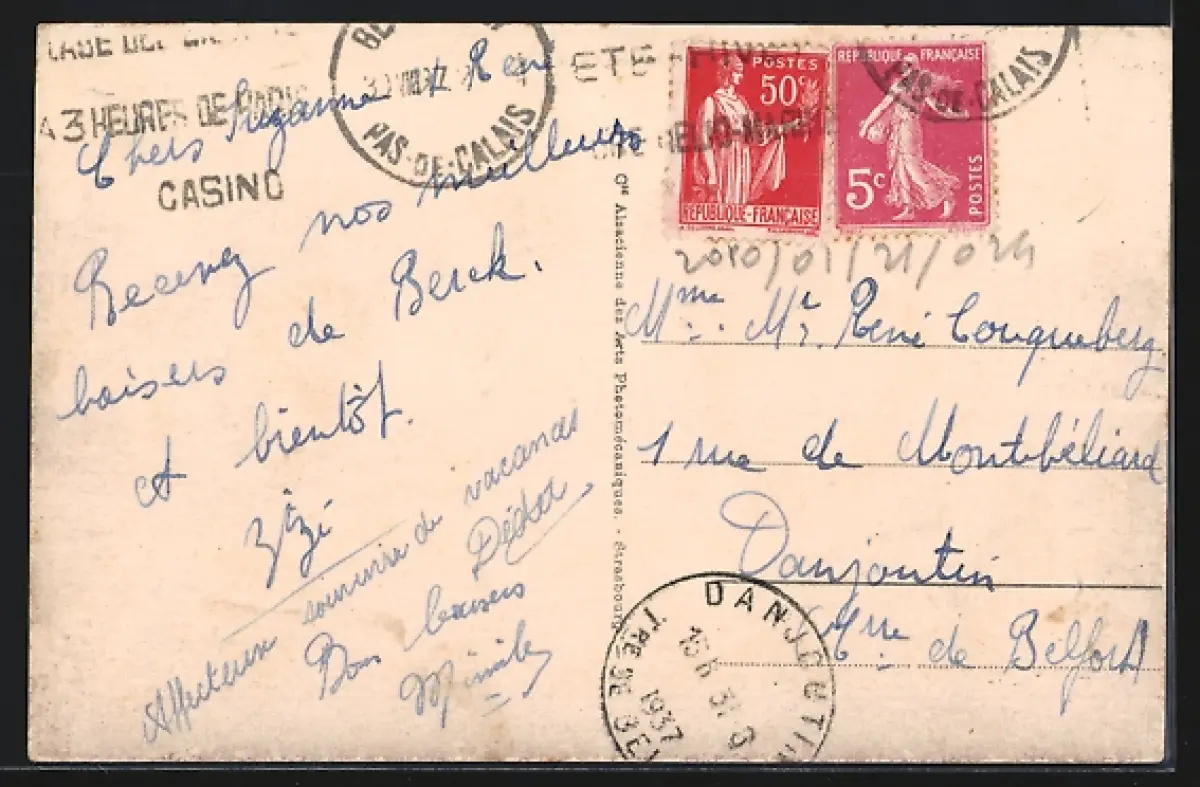 A 3 HEURES DE PARIS
CASINO
PAS-DE-CALAIS
ETE - HIVER
PAS-DE-CALAIS
POSTES
50c
REPUBLIQUE-FRANÇAISE
REPUBLIQUE FRANÇAISE
5c
POSTES
2010/01/21/024
Chers Suzanne et René
Recevez nos meilleurs
baisers de Berck.
A bientôt.
Zizi
Affectueux souvenir de vacances
Dédée
Bons baisers
Mimile
Cie Alsacienne des Arts Photomécaniques. - Strasbourg
Mme Mr René
1 rue de Montbéliard
Danjoutin
Trre de Belfort
DANJOUTIN
15 h 31-8
1937
TRE DE BEL